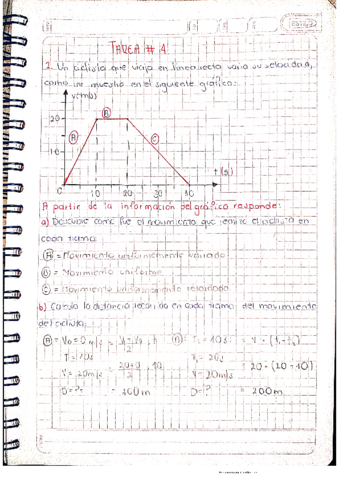 TAREA # 1
1. Un ciclista que viaja en línea recta varía su velocidad,
como se muestra en el siguiente gráfico:
v(m/s)
B
20
A
C
10
t (s)
0 10 20 30 40
A partir de la información del gráfico responde:
a) Describe como fue el movimiento que realizó el ciclista en
cada tramo
A = Movimiento uniformemente variado
B = Movimiento uniforme
C = Movimiento retardado
b) Calcula la distancia recorrida en cada tramo del movimiento
del ciclista.
A = Vo = 0 m/s
T = 10s
V = 20m/s = 20+0/2 . 10
D = ? = 100m
B = T1 = 10s = v · (t2 - t1)
T2 = 20s = 20 · (20 - 10)
V = 20m/s
D = ? = 200m